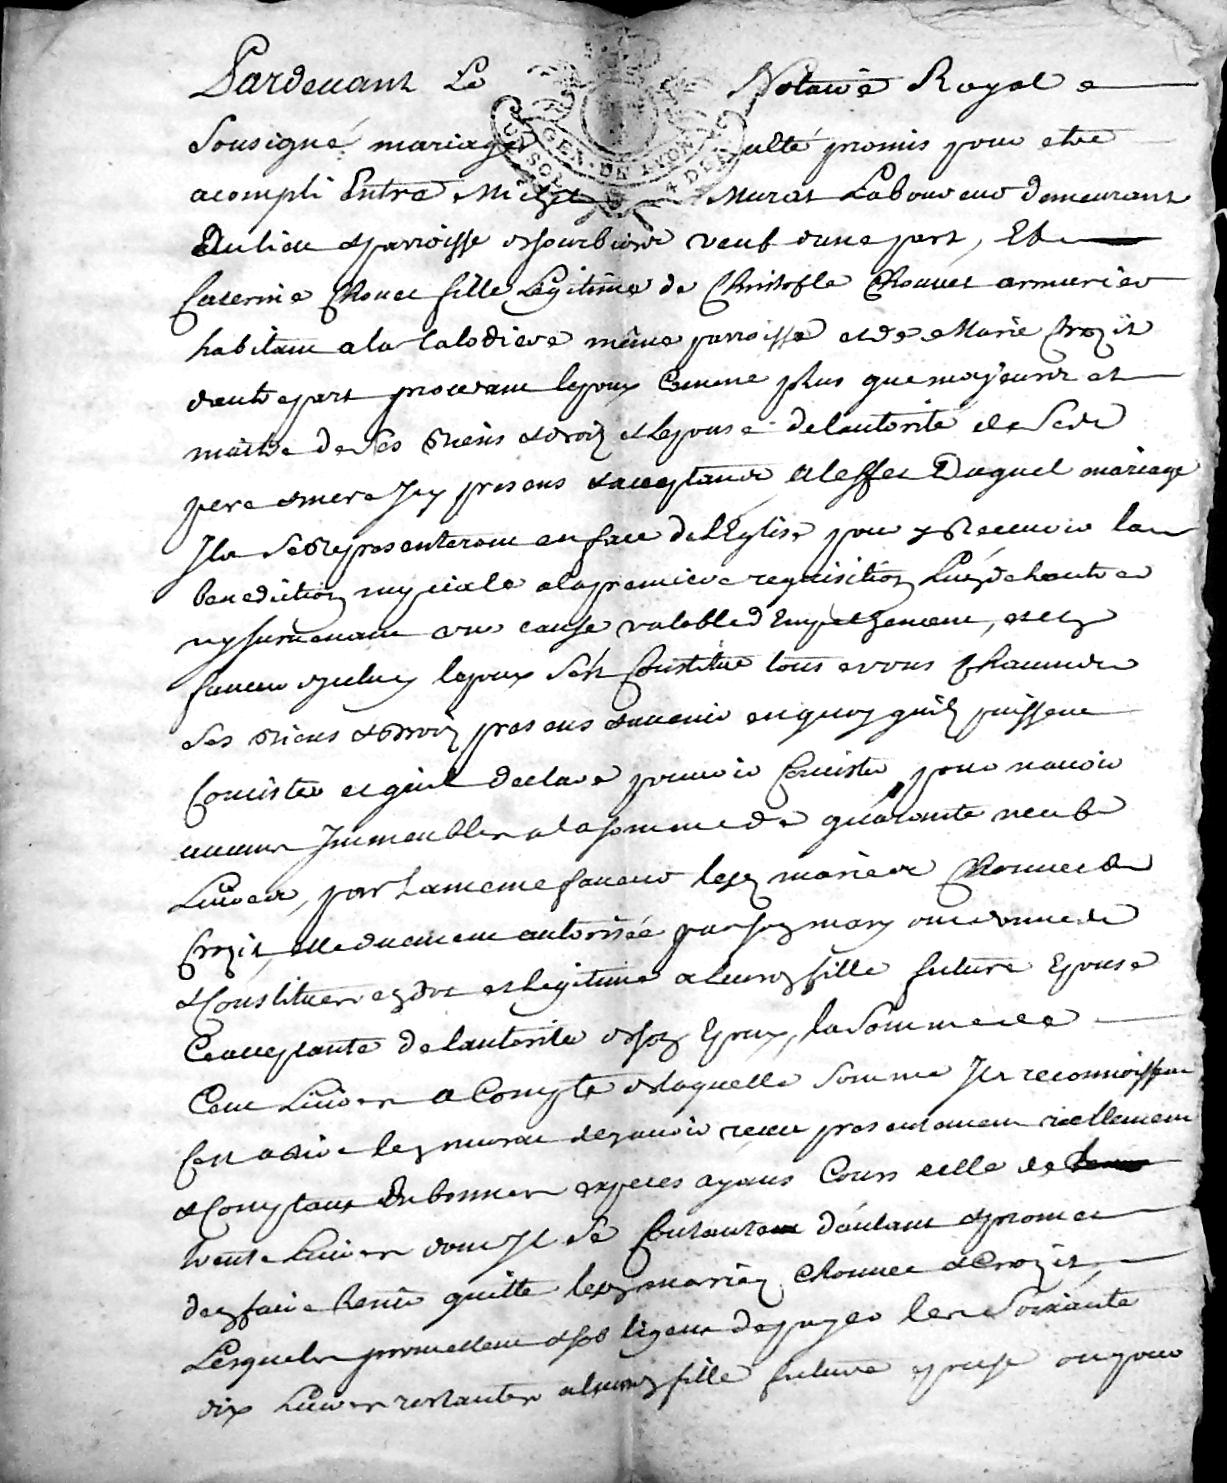 Pardevant Le Notaire Royal
Sousigné mariage
GEN. DE LYON
a compli Entre Michel Murat Laboureur demeurant
Du lieu & parroisse veuf dune part, Et
Caterine Chouet fille Legitime de Christofle Chouvet armurier
habitant a la même parroisse et de Marie Crozit
dautre part procedant lepoux Comme plus que majeur et
maitre de ses Biens & droiz & Lepouse de lautorité de Sesd
pere & mere Icy presens & acceptans a leffet Duquel mariage
Ils se Representeront en face de lEglise pour y Recevoir la
benediction nuptiale a la premiere requisition Lun de lautre
ny survenant cause valable dEmpechement, et en
faveur diceluy lepoux sest Constitué tous & uns
ses Biens & Droiz presens & avenir en quoy quilz puissent
Concister et quil declare pouvoir Concister pour navoir
aucuns Immeubles a la somme de quarante neuf
Livres, par La meme faveur lesd mariés Chouvet &
Crozit, elle duement autorisée par son mary ont donné
& Constitué en dot et legitime a leurd fille future Epouse
Ce acceptante de lautorite de son Epoux, la Somme de
Cent Livres a Compte de laquelle somme Ils reconnoissent
Cest a dire led murat davoir receu presentement reellement
& Comptant En bonnes especes ayans Cours celle de
trente Livres dont Il se Contante dautant & promet
den faire tenir quitte lesd mariez Chouvet & Crozit,
Lesquels promettent & sobligent de payer les Soixante
dix Livres restantes a leurd fille future epouse ou pour